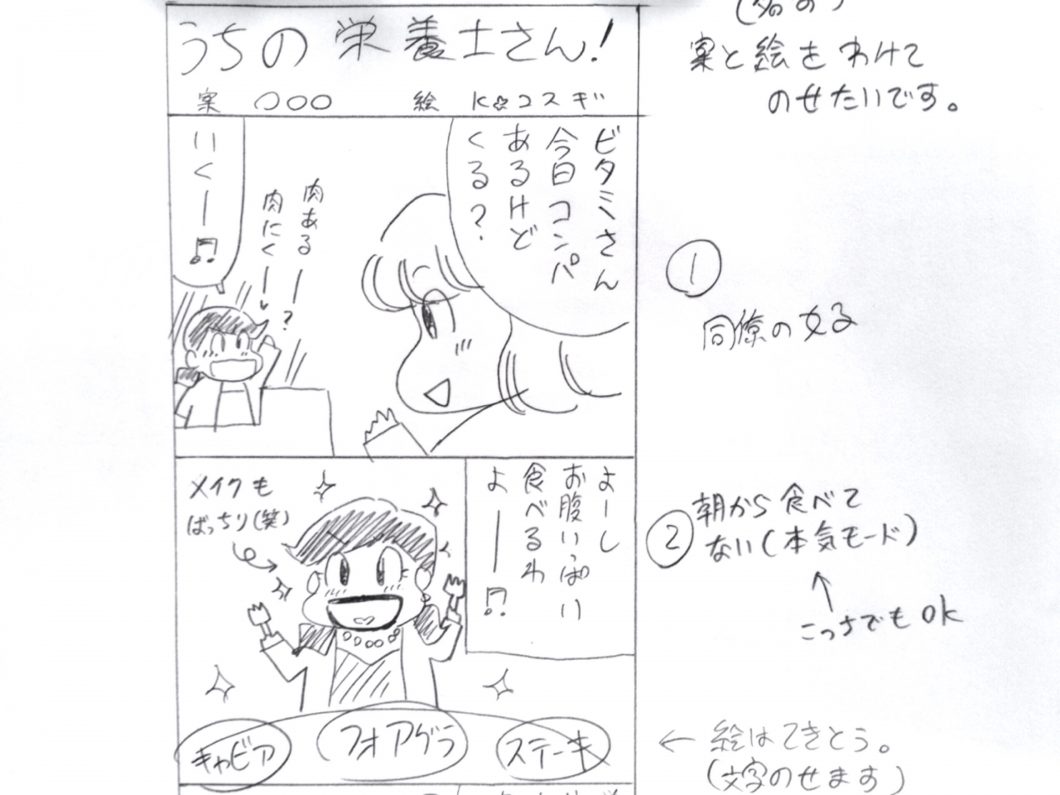 うちの栄養士さん!
案 〇〇〇 絵 K☆コスギ
案と絵をわけて
のせたいです。
ビタミさん
今日コンパ
あるけど
くる?
肉あるー?
肉にくー
いくー♫
①
同僚の女子
よーし
お腹いっぱい
食べるわ
よー♫
メイクも
ばっちり(笑)
キャビア
フォアグラ
ステーキ
②朝から食べて
ない(本気モード)
↑
こっちでもOK
← 絵はてきとう。
(文字のせます)